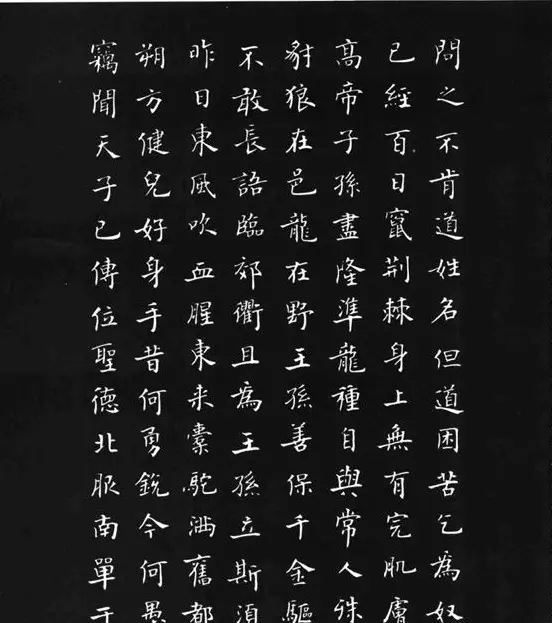 問之不肯道姓名但道困苦乞為奴
已經百日竄荆棘身上無有完肌膚
高帝子孫盡隆準龍種自與常人殊
豺狼在邑龍在野王孫善保千金驅
不敢長語臨郊衢且為王孫立斯湏
昨日東風吹血腥東来橐駝满舊都
朔方健兒好身手昔何勇銳今何愚
竊聞天子已傳位聖德北服南單于